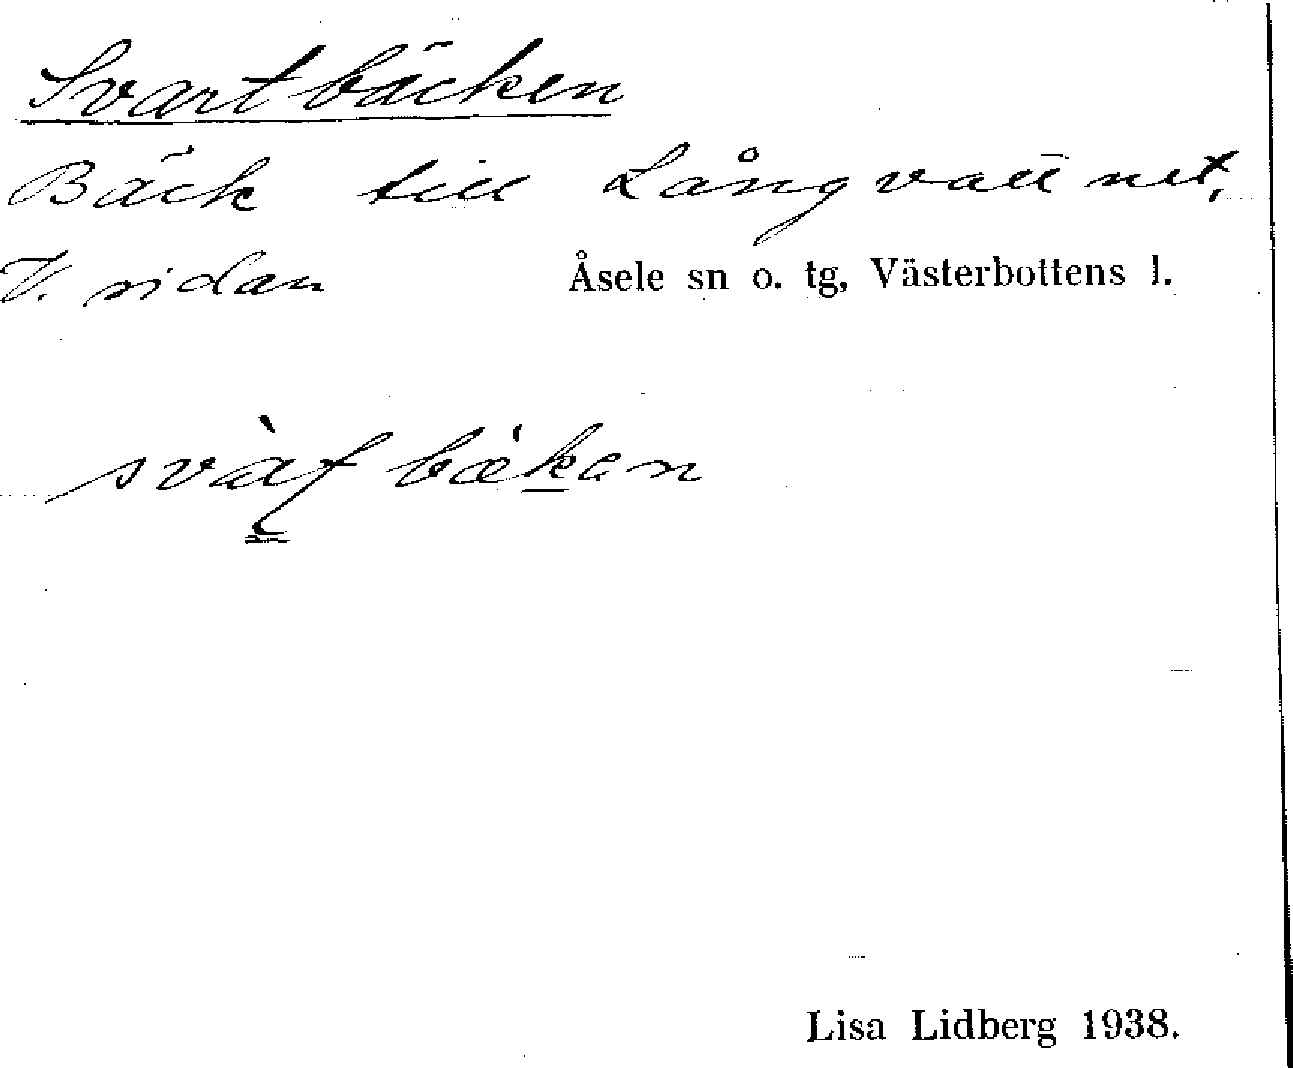 Svartbäcken
Bäck till Långvattnet,
V. sidan Åsele sn o. tg, Västerbottens l.
svàʈ bækan
Lisa Lidberg 1938.